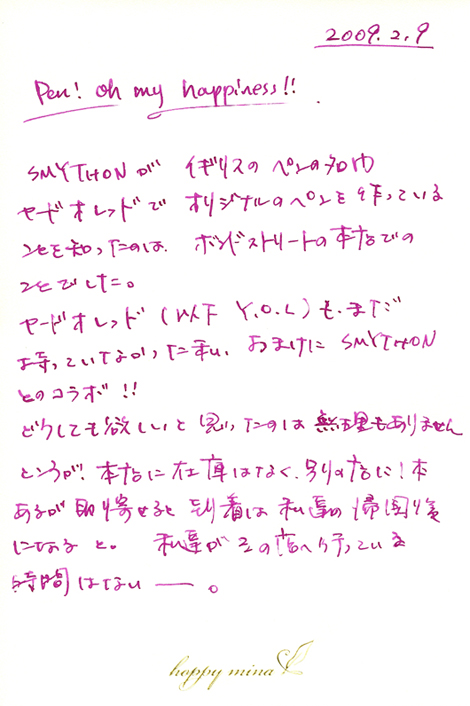 2009.2.9
Pen! oh my happiness!!
SMYTHONが イギリスの ペンの
ヤードオレッドで オリジナルのペンを作っている
ことを知ったのは、ボンドストリートの本店での
ことでした。
ヤードオレッド (以下 Y.O.L)も、まだ
持っていなかった私、おまけに SMYTHON
とのコラボ!!
どうしても欲しいと思ったのは無理もありません
ところが! 本店に在庫はなく、別の店に1本
あるが取り寄せると到着は私達の帰国後
になると。 私達がその店へ行っている
時間はないー。
happy mina